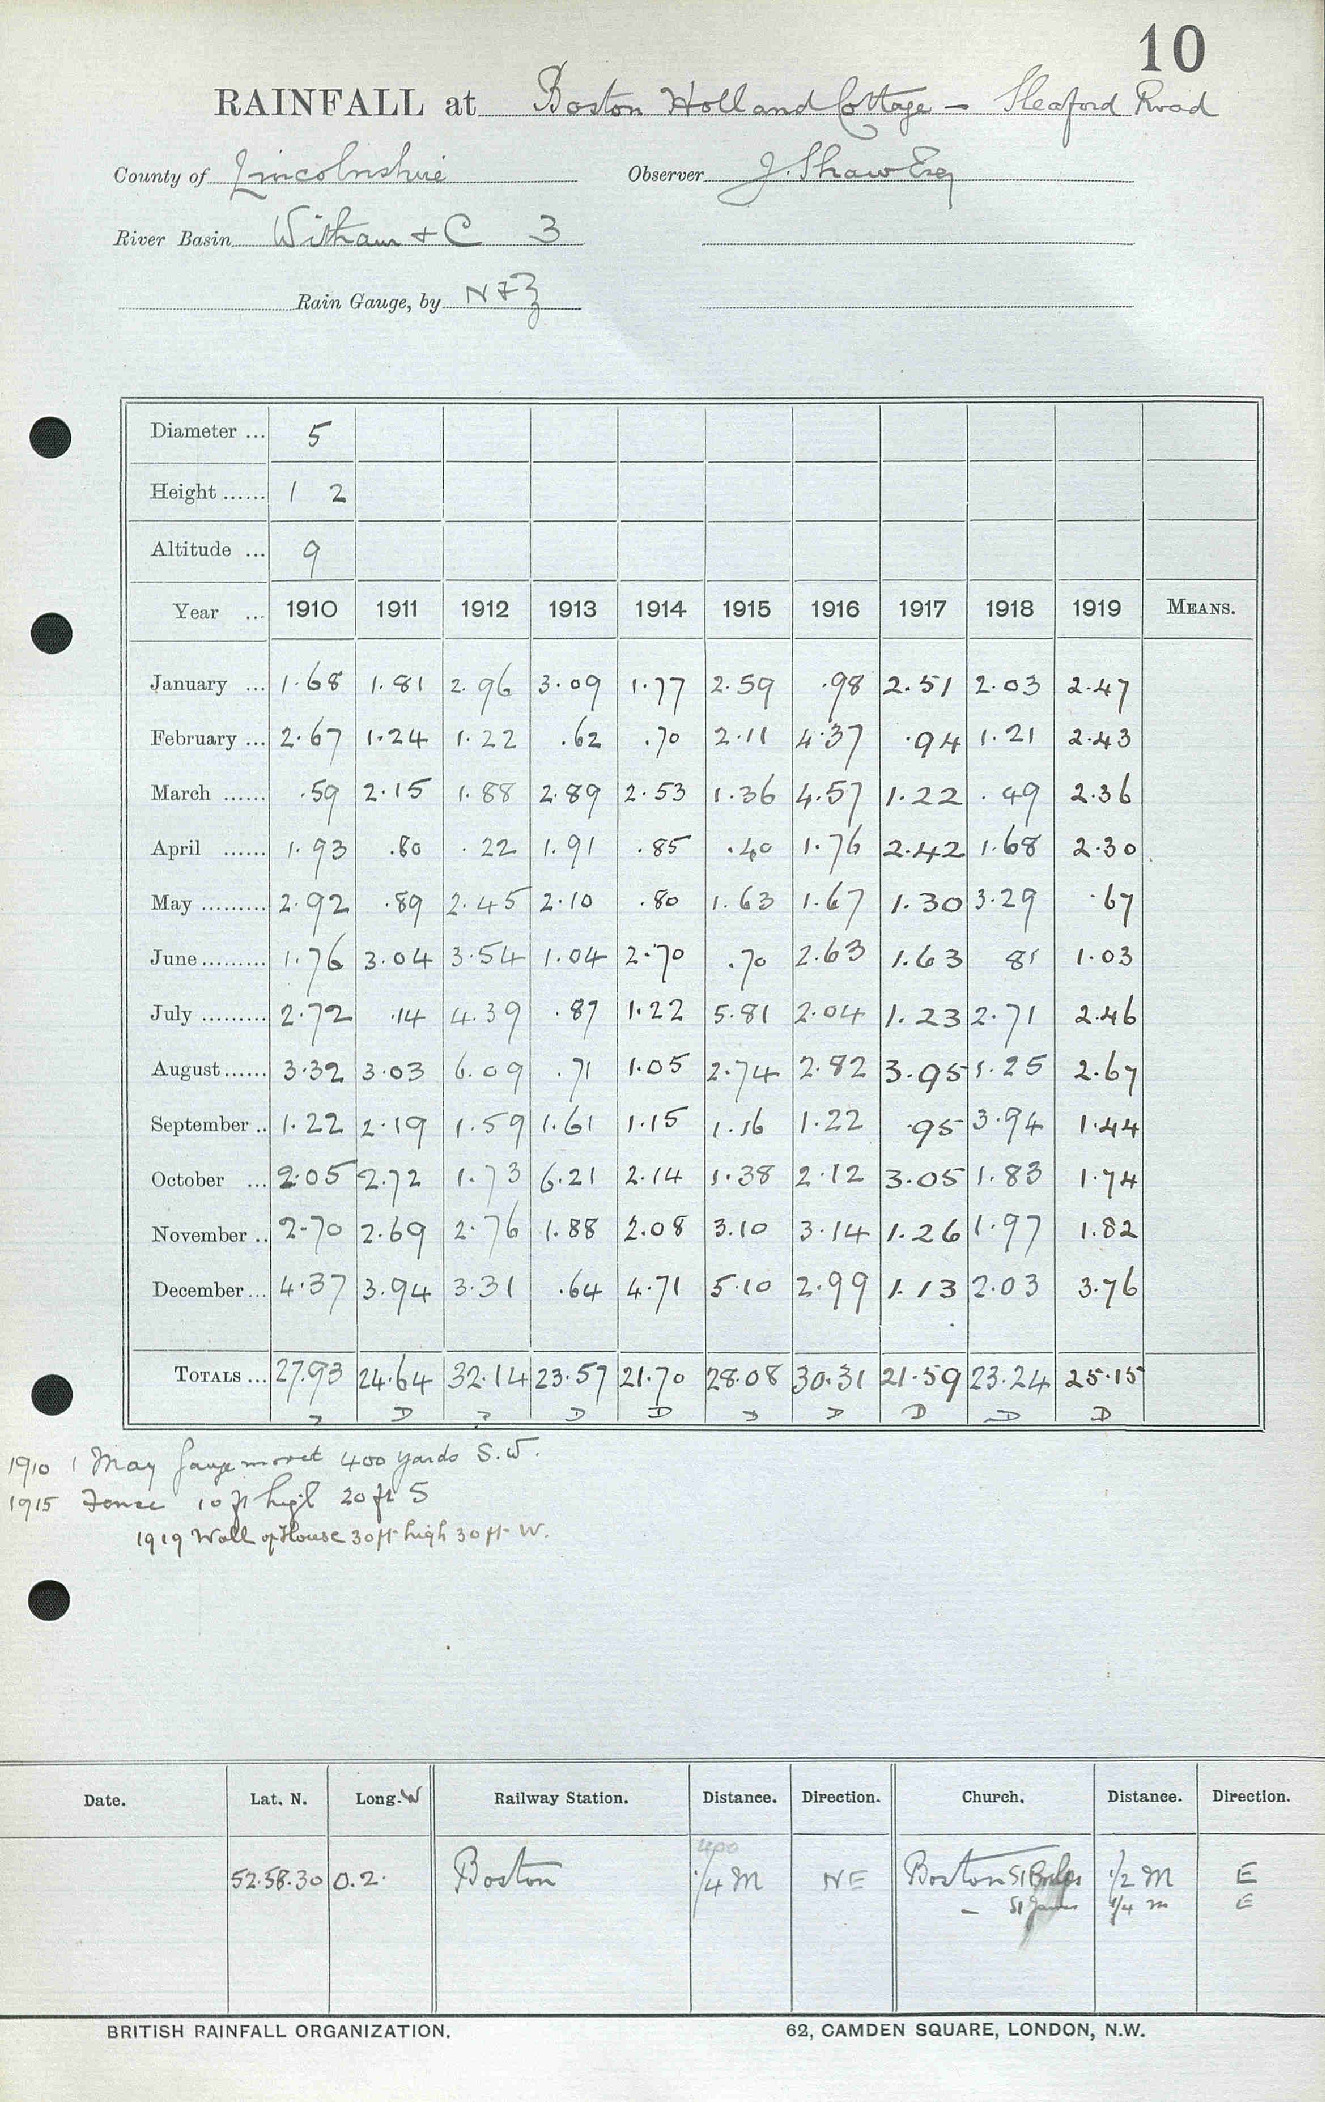 10
RAINFALL at Boston Holland Cottage - Sleaford Road
County of Lincolnshire Observer J. Shaw Esq
River Basin Witham + C 3
Rain Gauge, by N & Z
Diameter ... 5
Height ...... 1 2
Altitude ... 9
Year ... 1910 1911 1912 1913 1914 1915 1916 1917 1918 1919 MEANS.
January ... 1.68 1.81 2.96 3.09 1.77 2.59 .98 2.51 2.03 2.47
February ... 2.67 1.24 1.22 .62 .70 2.11 4.37 .94 1.21 2.43
March ...... .59 2.15 1.88 2.89 2.53 1.36 4.57 1.22 .49 2.36
April ...... 1.93 .80 .22 1.91 .85 .40 1.76 2.42 1.68 2.30
May ......... 2.92 .89 2.45 2.10 .80 1.63 1.67 1.30 3.29 .67
June ......... 1.76 3.04 3.54 1.04 2.70 .70 2.63 1.63 81 1.03
July ......... 2.72 .14 4.39 .87 1.22 5.81 2.04 1.23 2.71 2.46
August ...... 3.32 3.03 6.09 .71 1.05 2.74 2.82 3.95 1.25 2.67
September .. 1.22 2.19 1.59 1.61 1.15 1.16 1.22 .95 3.94 1.44
October ... 2.05 2.72 1.73 6.21 2.14 1.38 2.12 3.05 1.83 1.74
November .. 2.70 2.69 2.76 1.88 2.08 3.10 3.14 1.26 1.97 1.82
December ... 4.37 3.94 3.31 .64 4.71 5.10 2.99 1.13 2.03 3.76
TOTALS ... 27.93 24.64 32.14 23.57 21.70 28.08 30.31 21.59 23.24 25.15
D D D D D D D D D D
1910 1 May Gauge moved 400 yards S.W.
1915 Fence 10 ft high 20 ft S
1919 Wall of House 30 ft high 30 ft W.
Date. Lat. N. Long. W Railway Station. Distance. Direction. Church. Distance. Direction.
400
52.58.30 0.2. Boston 1/4 M NE Boston St Botolps 1/2 M E
- St James 1/4 m E
BRITISH RAINFALL ORGANIZATION. 62, CAMDEN SQUARE, LONDON, N.W.